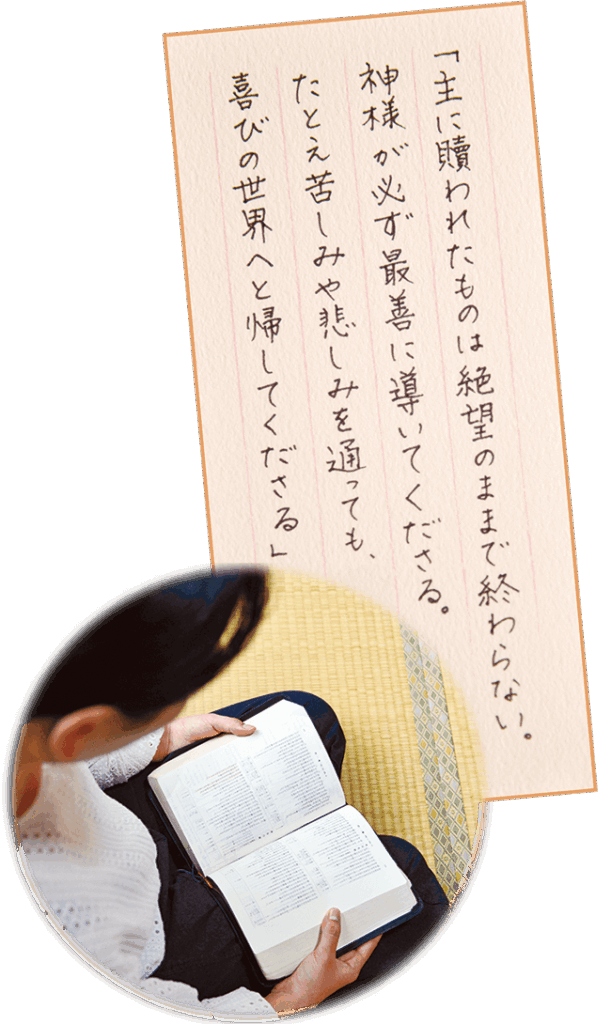 「主に贖われたものは絶望のままで終わらない。
神様が必ず最善に導いてくださる。
たとえ苦しみや悲しみを通っても、
喜びの世界へと帰してくださる」